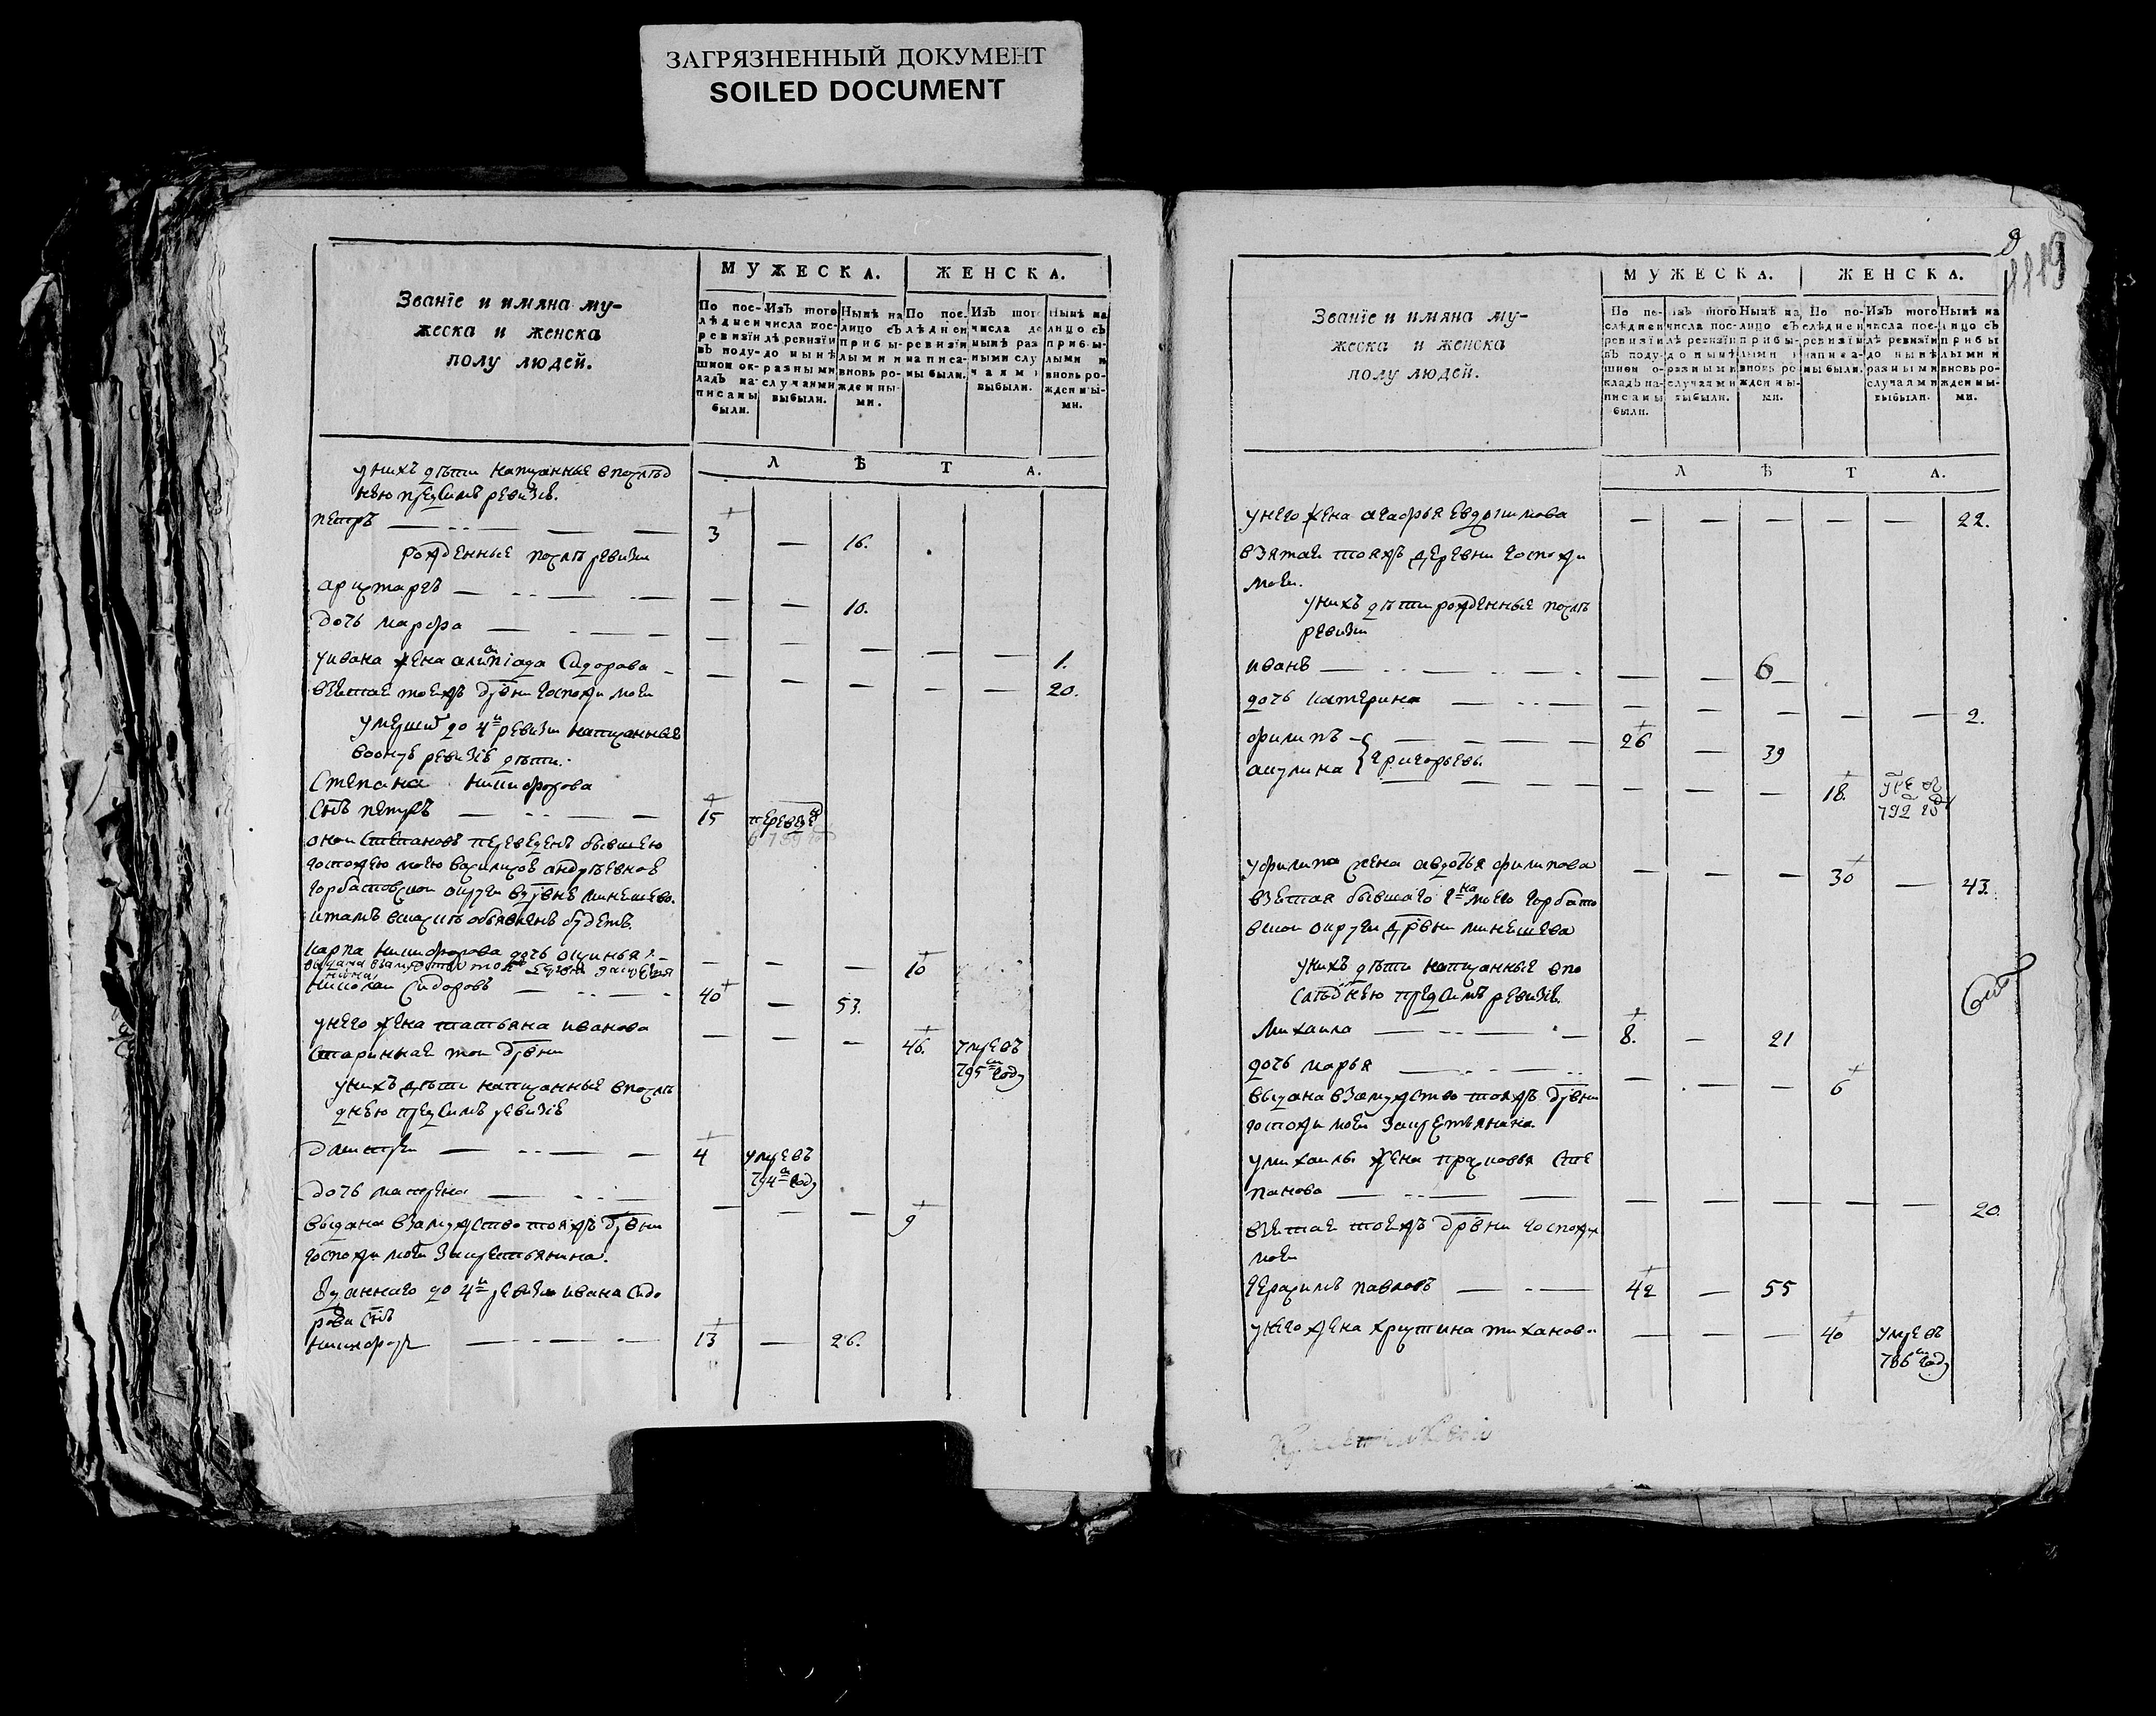 ЗАГРЯЗНЕННЫЙ ДОКУМЕНТ
SOILED DOCUMENT
Званїе и имяна му-
жеска и женска
полу людей.
МУЖЕСКА. ЖЕНСКА.
По пос-
лѣдней
ревизїи
въ поду-
шном ок-
ладѣ на-
писаны
были.
Изъ того
числа пос-
лѣ ревизїи
до нынѣ
разными
случаями
выбыли.
Нынѣ на
лицо съ
прибы-
лыми и
вновь ро-
жденны-
ми.
По пос.
лѣдней
ревизїи
написа-
ны были.
Изъ того
числа до
нынѣ раз
ными слу
чаями
выбыли.
Нынѣ на
лицо съ
прибы-
лыми и
вновь ро-
жденны-
ми.
Л Ѣ Т А.
у нихъ дѣти написанные впослѣд
нею предсимъ ревизіе.
петръ 3 — 16.
рожденные послѣ ревизии
аристархъ — — 10.
дочь марфа — — — — — 1.
уивана жена алимпіада Сидорова — — — — — 20.
взетая тоежъ дрвни госпожи моеи
умершиъ до 4й ревизии написанные
воонуе ревизіе дѣти.
Степана никифорова
снъ петръ 15 переведе
в 789 год
оной Степановъ переведенъ бывшею
госпожею моею василисое андреевное
горбатовскои округи вдрвне минеево.
итамъ вскаскѣ объявленъ будетъ.
карпа никифорова дочь окулина — — — 10
николаи Сидоровъ 40 — 53.
унего жена татьяна иванова — — — 46. умре въ
795м году
Старинная тои дрвни
унихъ дѣти написанные впослѣ
днею предсимъ ревизіе
дмитреи 4 умре въ
794м году
дочь матрена — — — 9
выдана взамужство тояжъ дрвни
госпожи моеи закрестьянина.
до 4й ревизии ивана Сидо
рова снъ
никифоръ 13 — 26.
9
1119
Званїе и имяна му-
жеска и женска
полу людей.
МУЖЕСКА. ЖЕНСКА.
По по-
слѣдней
ревизїи
въ поду-
шном о-
кладѣ на-
писаны
были.
Изъ того
числа пос-
лѣ ревизїи
до нынѣ
разными
случаями
выбыли.
Нынѣ на
лицо съ
прибы-
лыми и
вновь ро
жденны-
ми.
По по-
слѣдней
ревизїи
написа-
ны были.
Изъ того
числа пос-
лѣ ревизїи
до нынѣ
разными
случаями
выбыли.
Нынѣ на
лицо съ
прибы
лыми и
вновь ро-
жденны-
ми.
Л Ѣ Т А.
унего жена агафья Евдокимова — — — — — 22.
взятая тояжъ деревни госпожи
моеи.
унихъ дѣти рожденные послѣ
ревизии
иванъ — — 6
дочь катерина — — — — — 2.
филипъ 26 — 39
акулина } григорьевы — — — 18.
792 год
уфилипа жена авдотья филипова — — — 30 — 43.
взетая бывшаго гна моего горбато
вскои округи дрвни минеева
унихъ дѣти написанные впо
слѣднею предсимъ ревизіе.
михаила 8. — 21
дочь марья — — — 6
выдана взамужство тояжъ дрвни
госпожи моеи закрестьянина.
умихаилы жена прасковья Сте
панова — — — — — 20.
взетая тоежъ дрвни госпожи
моеи
герасимъ павловъ 42 — 55
унего жена христина тиханова — — — 40 умре въ
786м году